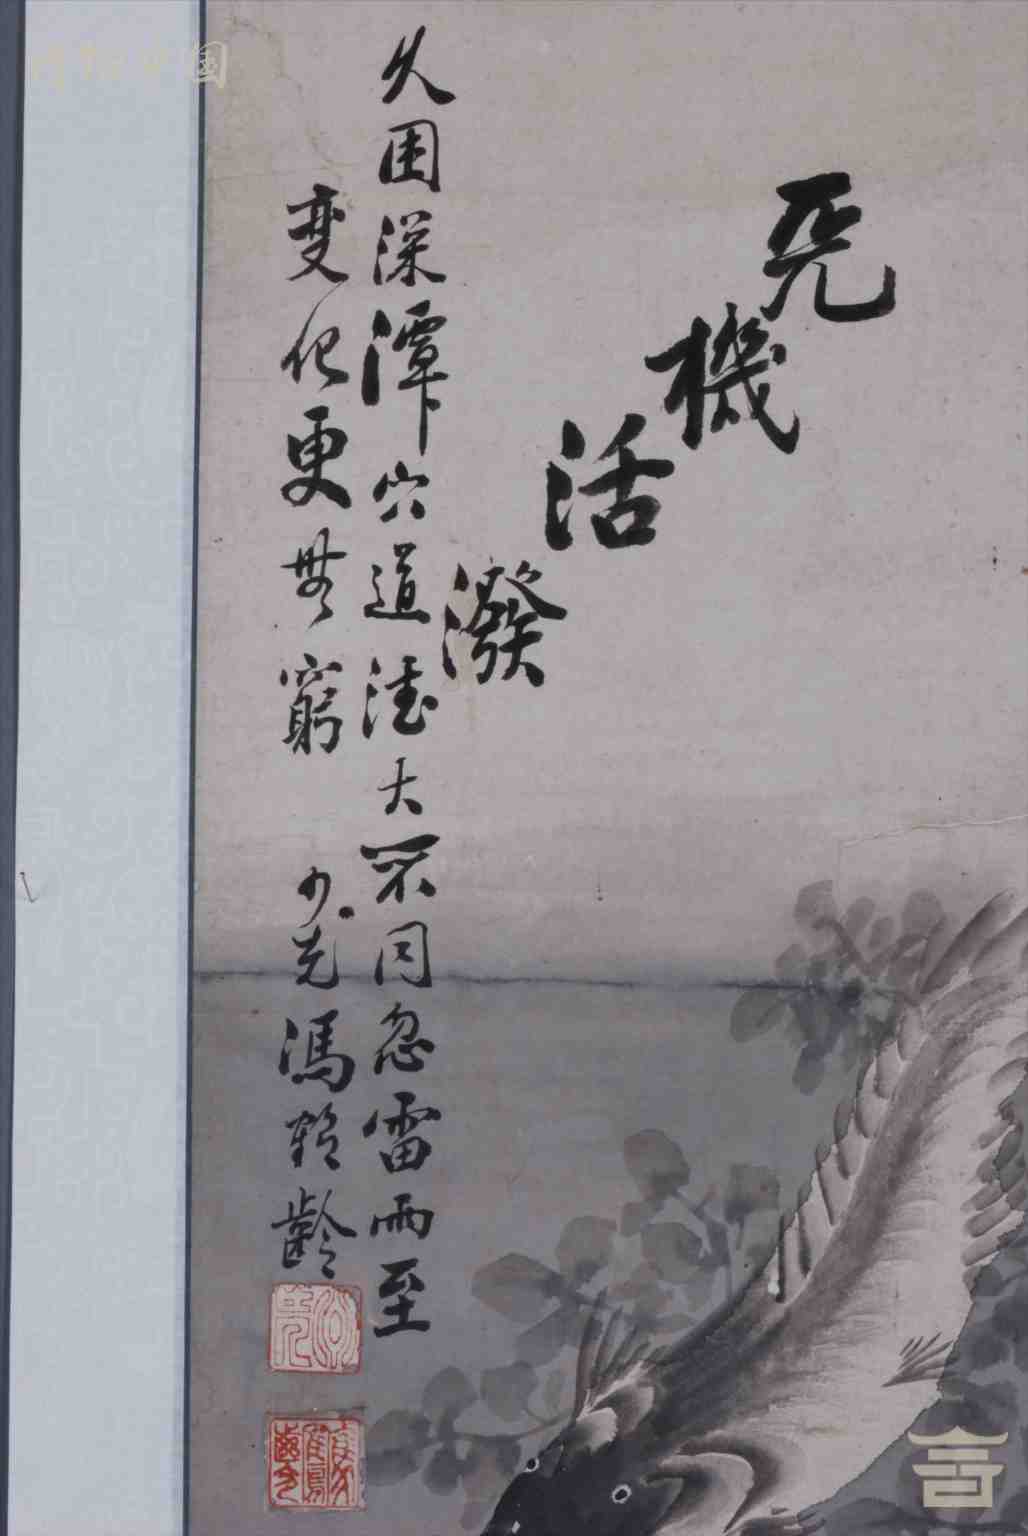 旡機活潑
久困深潭穴道德大不同忽雷雨至
変化更無窮
少先馮鶴齡